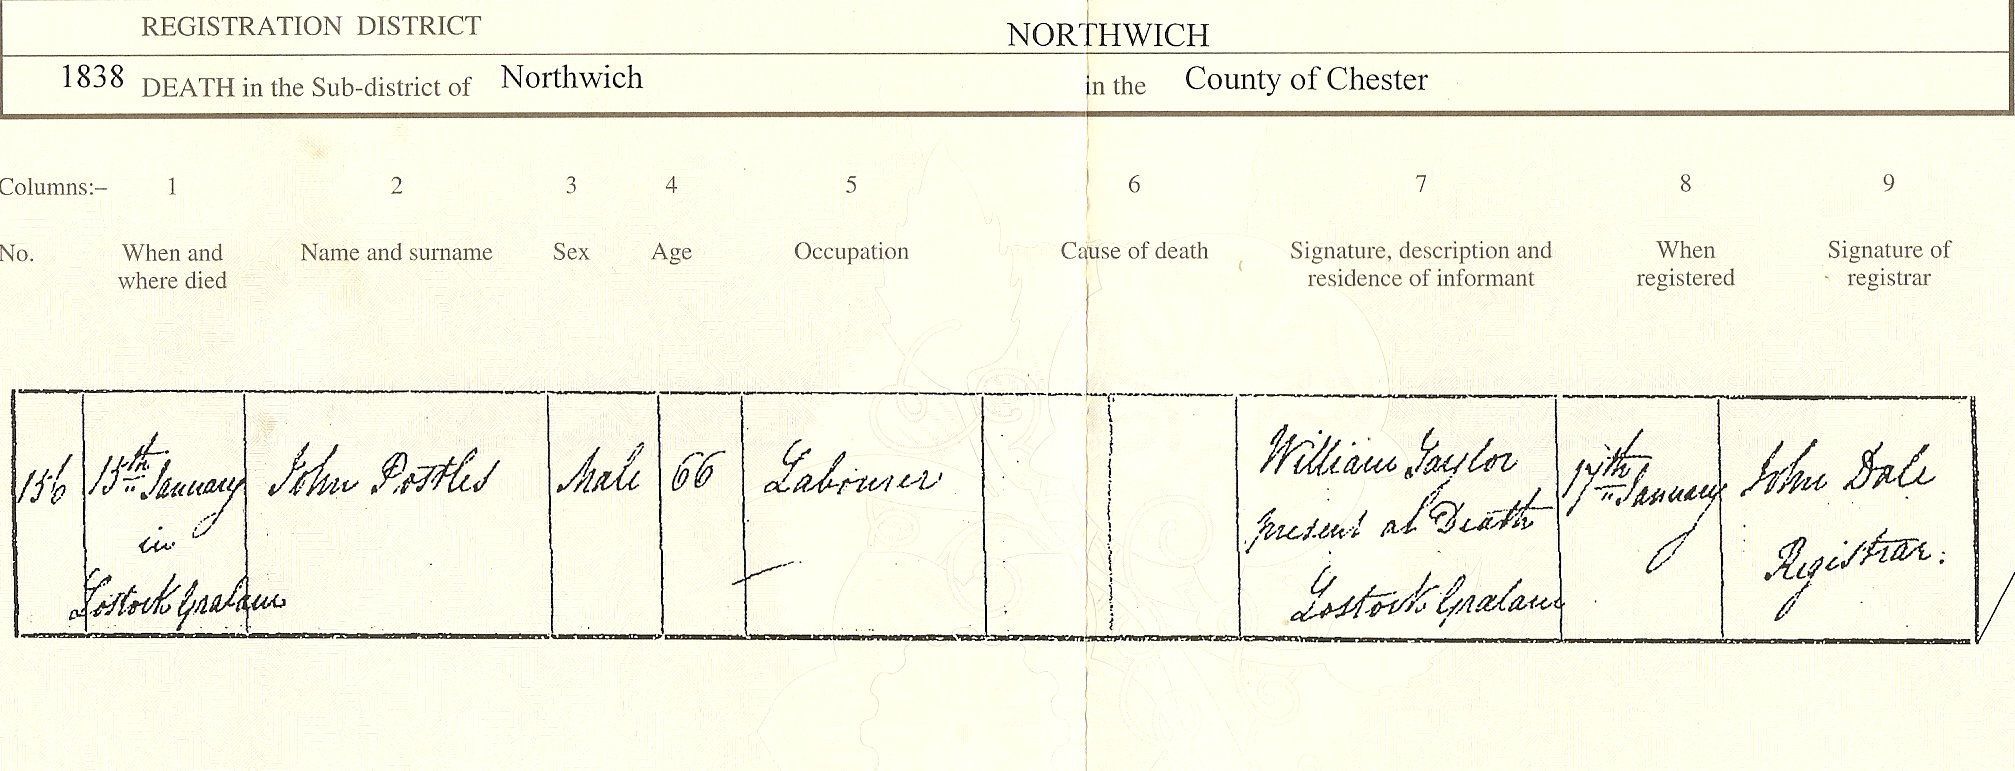 REGISTRATION DISTRICT NORTHWICH
1838 DEATH in the Sub-district of Northwich in the County of Chester
Columns:– 1 2 3 4 5 6 7 8 9
No. When and where died Name and surname Sex Age Occupation Cause of death Signature, description and residence of informant When registered Signature of registrar
156
15th January
in
Lostock Gralam
John Postles
Male
66
Labourer
William Taylor
present at Death
Lostock Gralam
17th January
John Dale
Registrar.